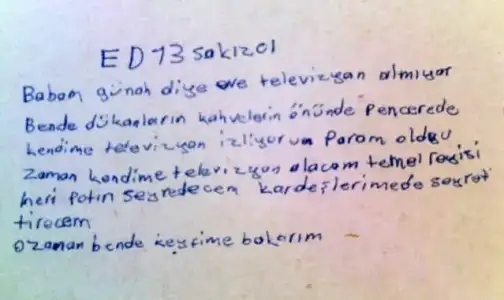 ED 73 sakızcı
Babam günah diye eve televizyan almıyor
Bende dükanların kahvelerin önünde Pencerede
kendime televizyan izliyorum Param oldgu
zaman kendime televizyan alacam temel reyisi
heri Potırı seyredecem kardeşlerimede seyret
tirecem
Ozaman bende keyfime bakarım